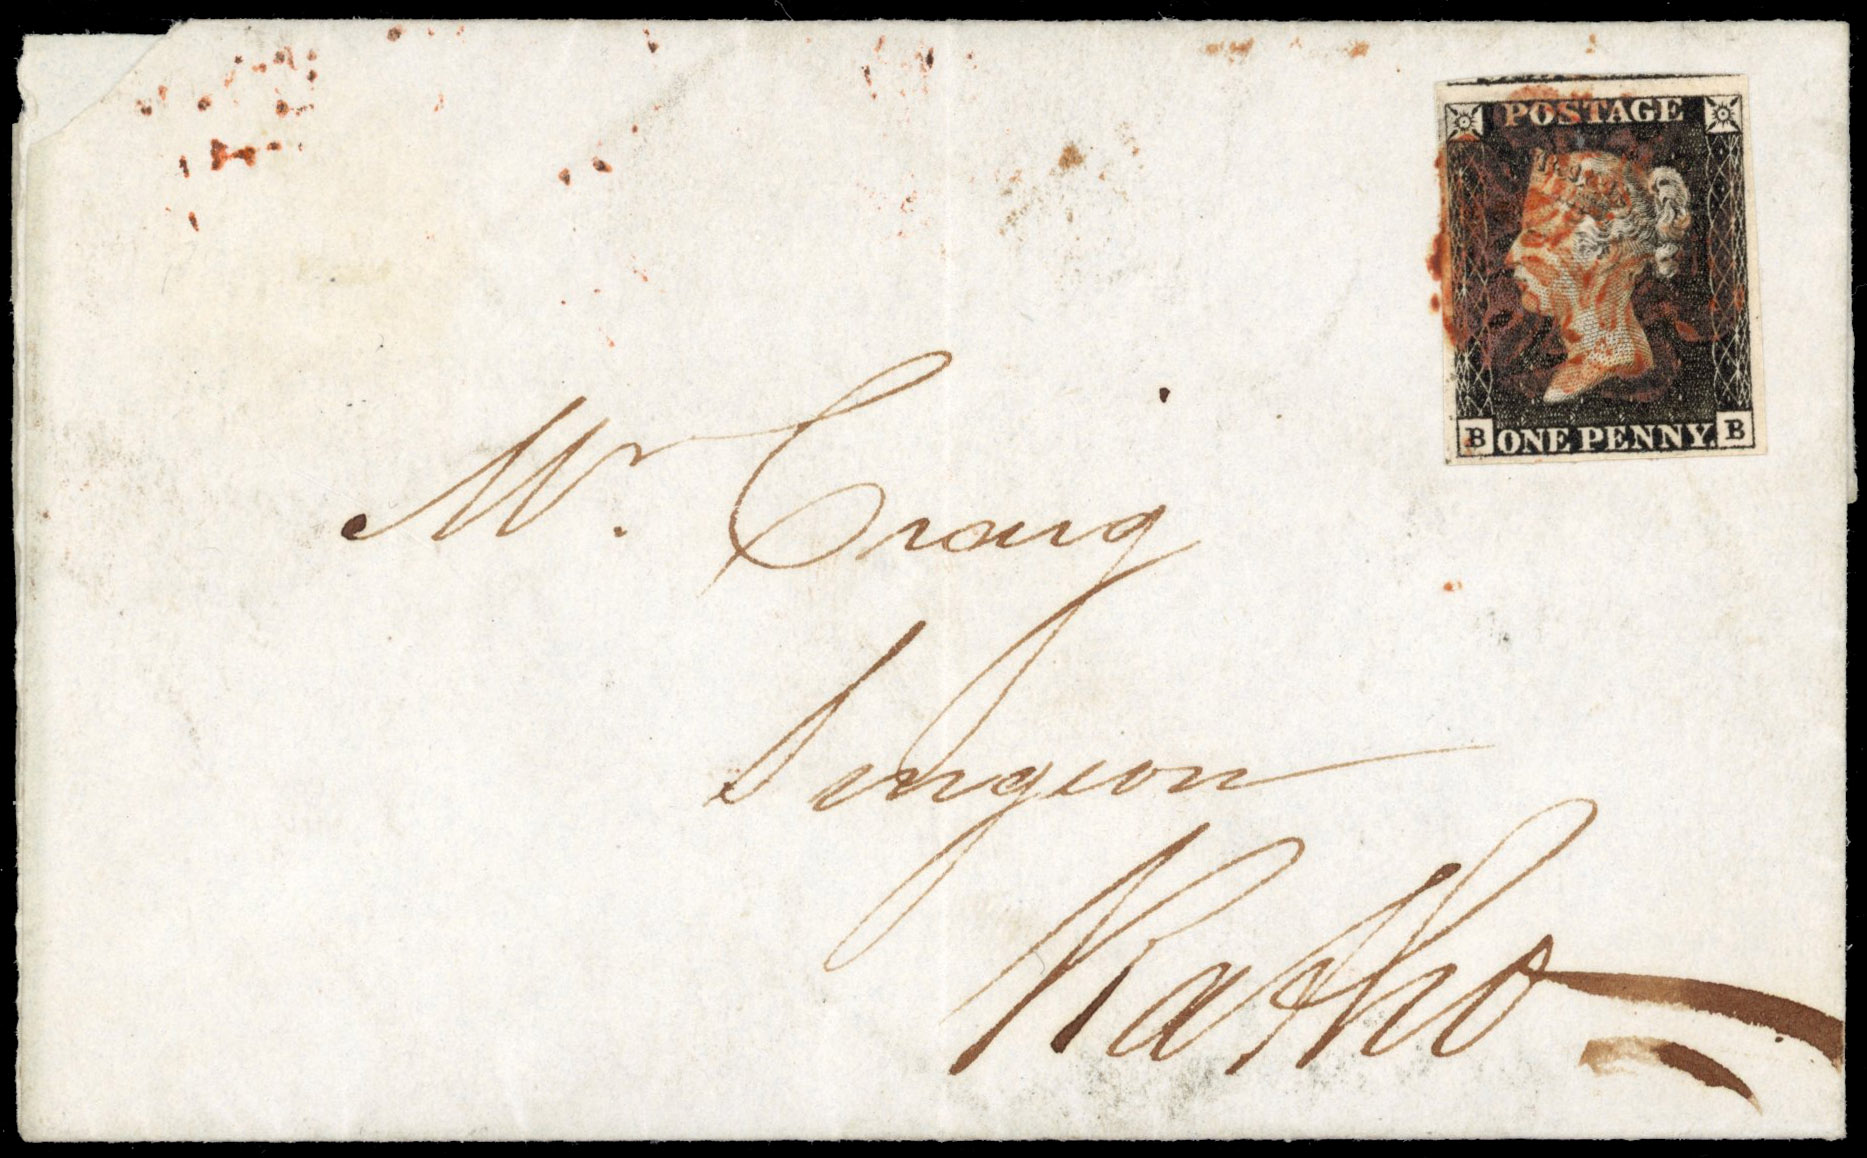 POSTAGE
B ONE PENNY. B
Mr. Craig
Surgeon
Ratho